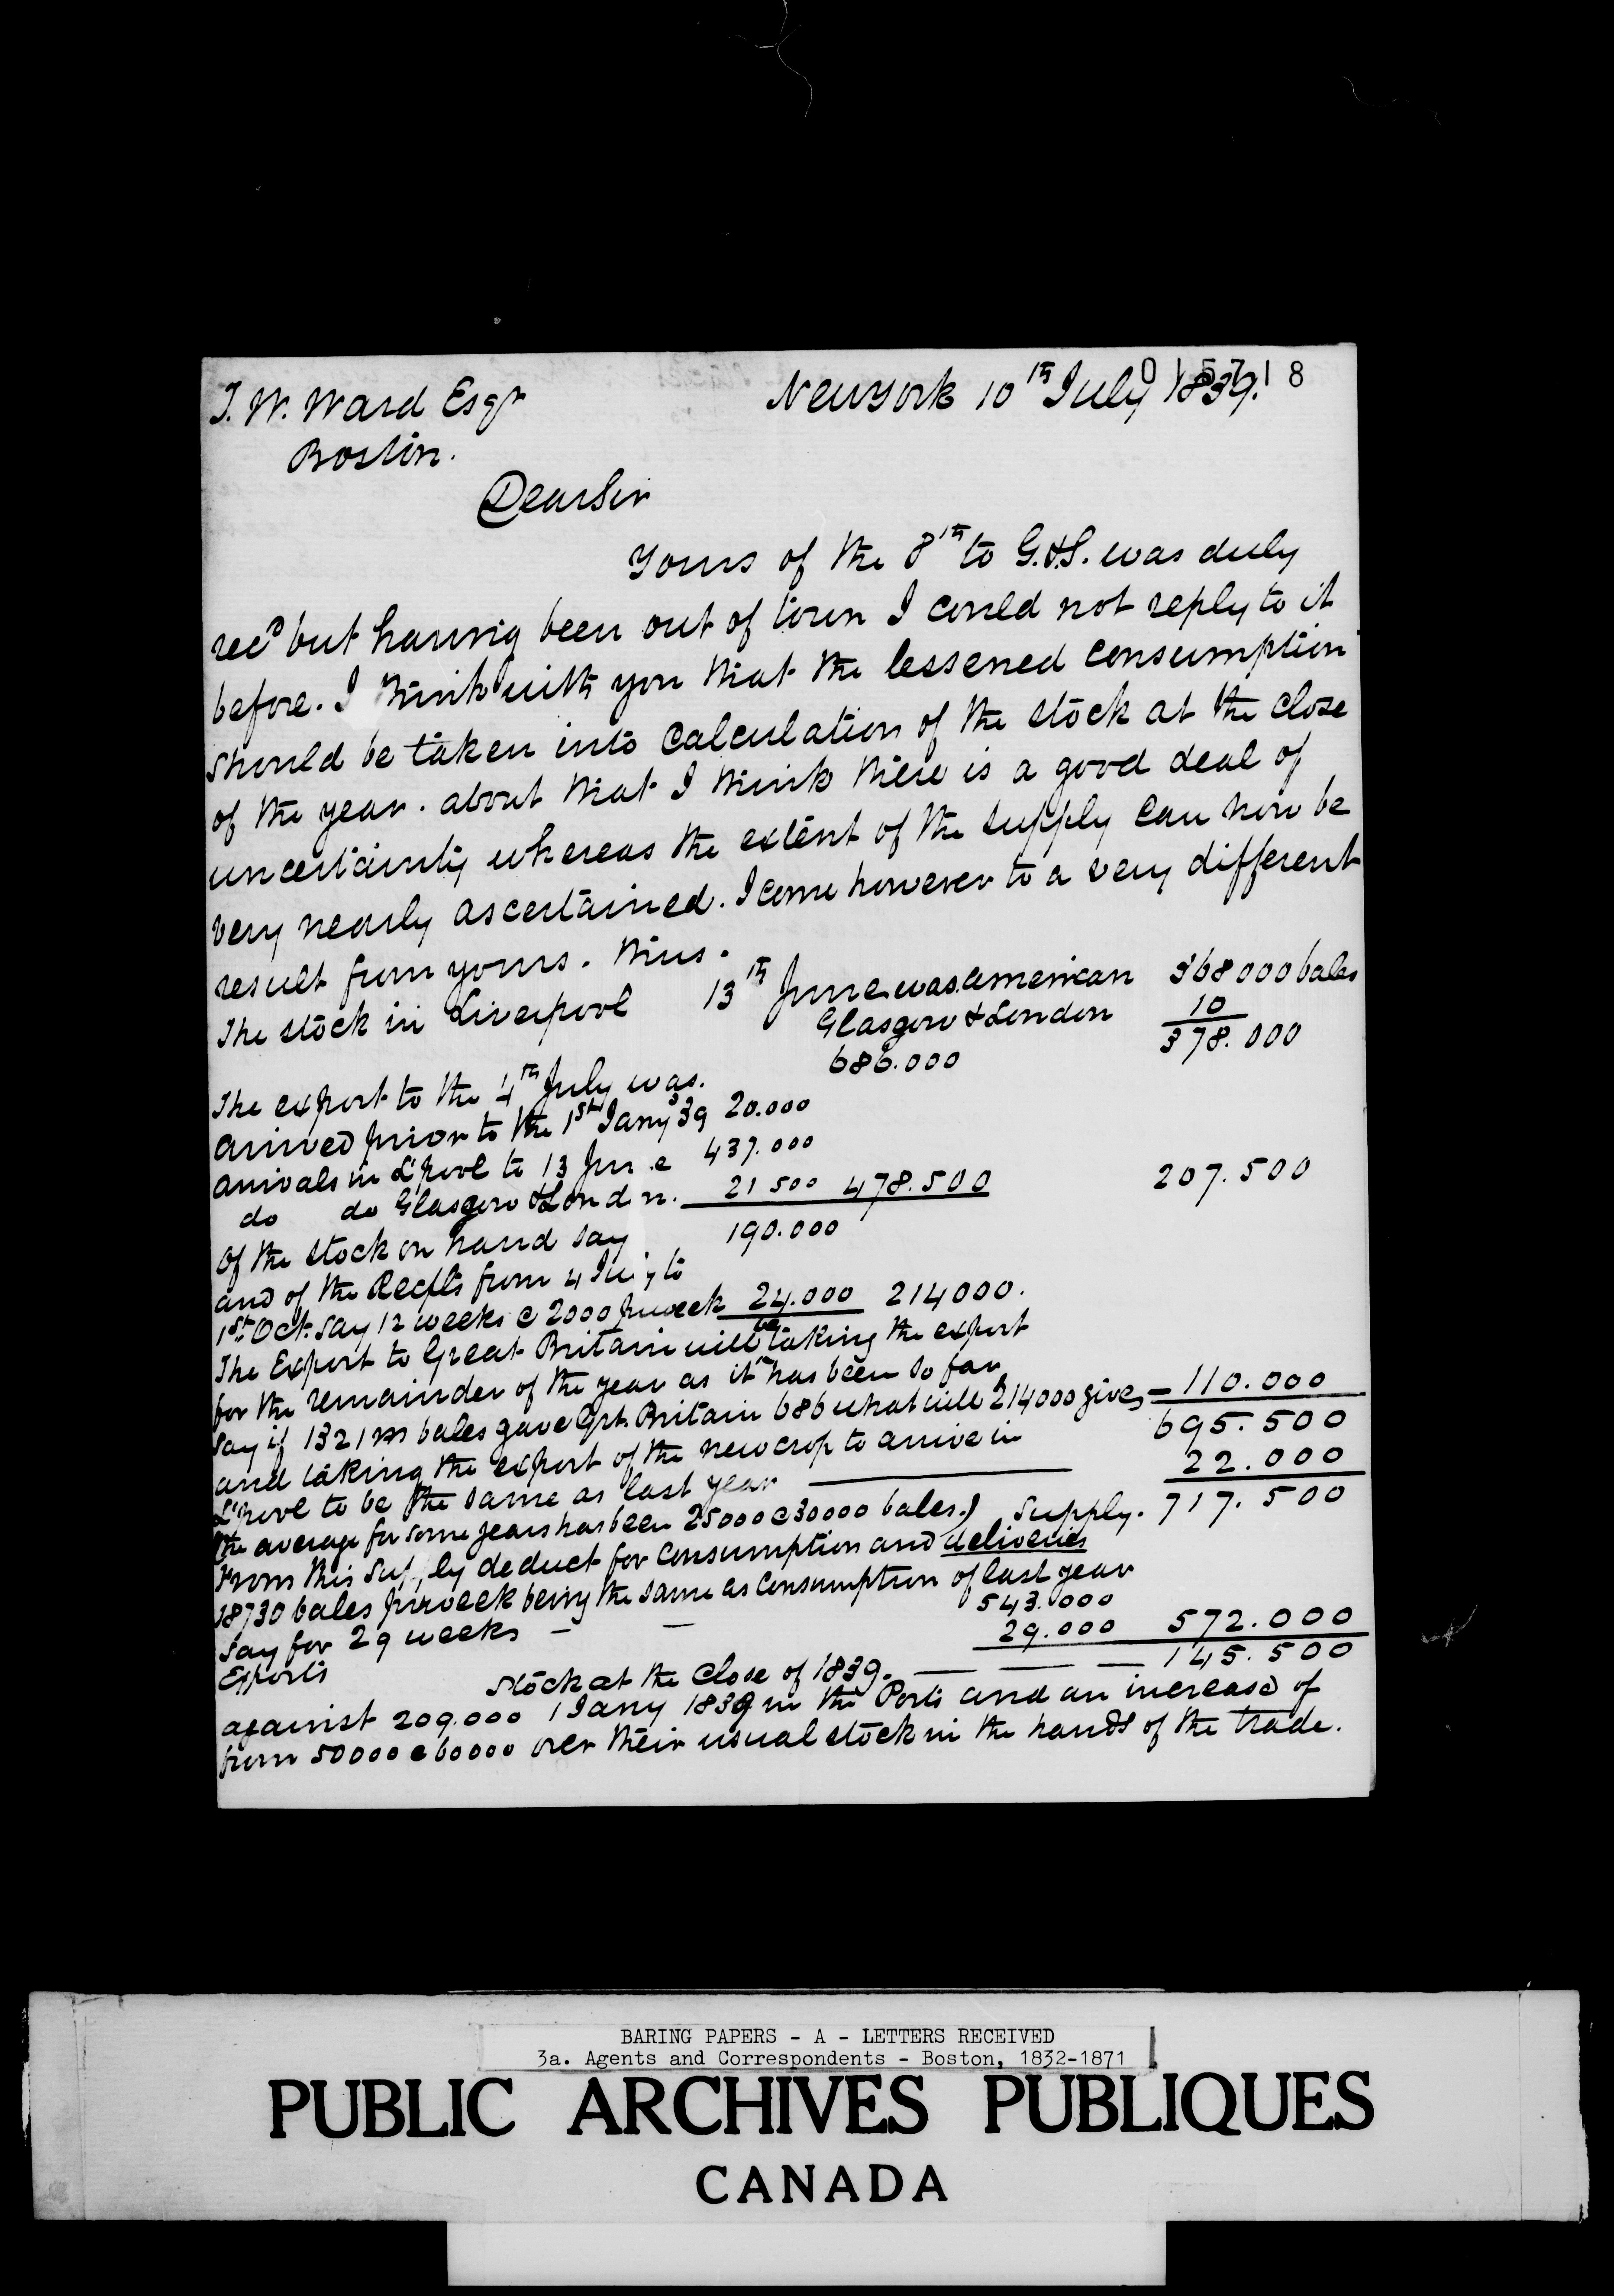 015718
T. W. Ward Esqr New York 10th July 1839.
Boston.
Dear Sir
Yours of the 8th to G.&S. was duly
recd but having been out of town I could not reply to it
before. I think with you that the lessened consumption
should be taken into calculation of the stock at the close
of the year. about that I think there is a good deal of
uncertainty whereas the extent of the supply can now be
very nearly ascertained. I come however to a very different
result from yours. thus.
The stock in Liverpool 13th June was american 368000 bales
Glasgow & London 10
378.000
The export to the 4th July was. 686.000
arrived prior to the 1st Jany 39 20.000
arrivals in L'pool to 13 June 437.000
do do Glasgow & London. 21 500 478.500 207.500
Of the stock on hand say 190.000
and of the Recpts from 4 July to
1st Oct. say 12 weeks @ 2000 pr week 24.000 214000.
The Export to Great Britain will be taking the export
for the remainder of the year as it has been so far
say if 1321 m bales gave Grt. Britain 686 what will 214000 give, - 110.000
695.500
and taking the export of the new crop to arrive in
L'pool to be the same as last year 22.000
the average for some years has been 25000 @ 30000 bales.) Supply. 717.500
From this supply deduct for consumption and deliveries
18730 bales pr week being the same as consumption of last year
say for 29 weeks - - 543.000
Exports 29.000 572.000
stock at the close of 1839. - - - 145.500
against 209.000 1 Jany 1839 in the Ports and an increase of
from 50000 @ 60000 over their usual stock in the hands of the trade.
BARING PAPERS - A - LETTERS RECEIVED
3a. Agents and Correspondents - Boston, 1832-1871
PUBLIC ARCHIVES PUBLIQUES
CANADA